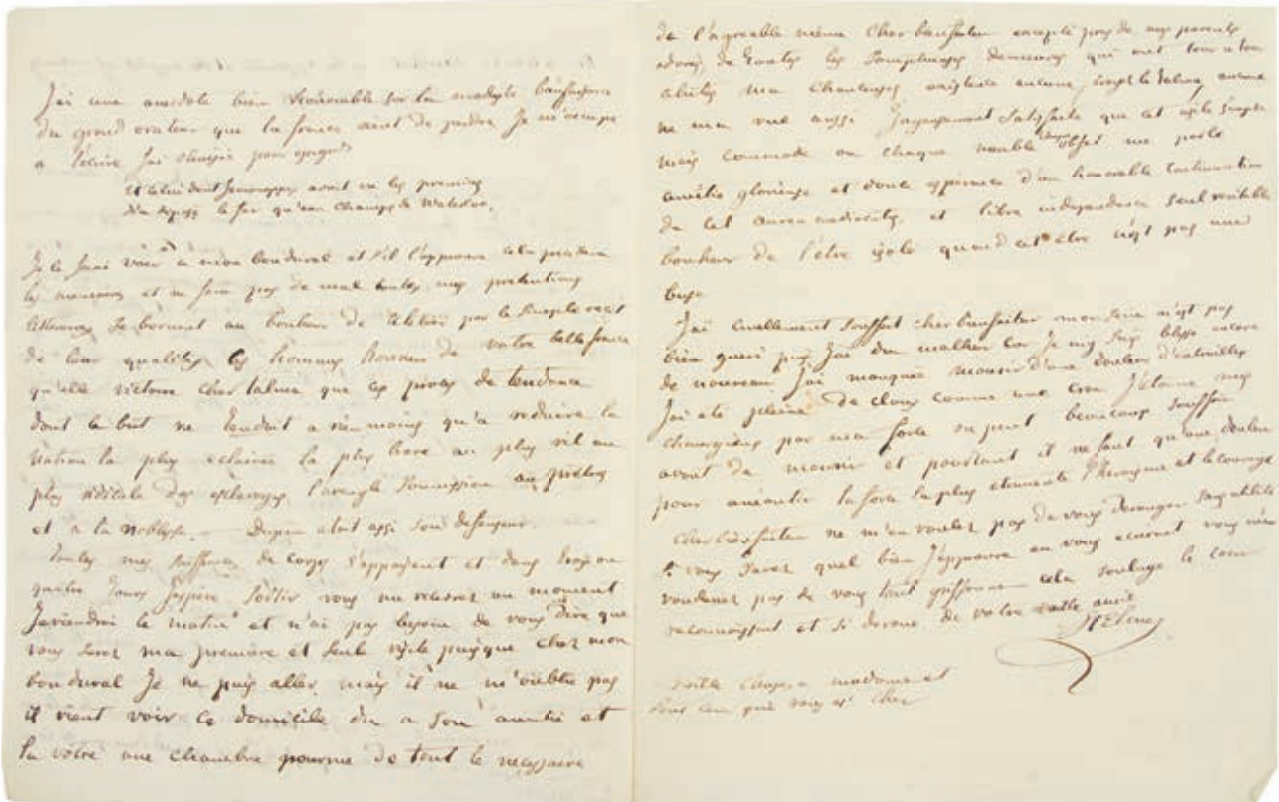 J'ai une anecdote bien honorable sur la modeste bienfaisance
du grand orateur que la france vient de perdre Je m'occupe
a l'écrire J'ai choisie pour
et celui dont Jemmappes avait vu les premiers
le fer qu'aux Champs de Waterloo
Je le ferai voir à mon bon duval et s'il l'approuve cela
les et ne fera pas de mal toutes mes pretentions
litteraires se bornent au bonheur de par le simple recit
de leur qualités les hommes honneur de votre belle france
qu'elle victoire cher talma que ce procès de tendance
dont le but ne tendait a rien moins qu'a reduire la
nation la plus eclairée la plus brave au plus vil au
plus ridicule des esclavages, l'aveugle soumission aux prêtres
et a la noblesse. — Dupin etait assi son defenseur
toutes mes de corps s'appaisent et dans trois ou
quatre Jours J'espère sortir vous me recevrez un moment
Je viendrai le matin et n'ai pas besoin de vous dire que
vous serez ma première et seule visite puisque chez mon
bon duval Je ne puis aller, mais il ne m'oublie pas
il vient voir ce domicile du a son amitié et
la votre une chambre pourvue de tout le necessaire
de l'agreable même cher bienfaiteur excepté pres de mes parents
adorés de toutes les somptueuses demeures qui ont tour a tour
abrités ma existence aucune, aucune
ne m'a vue aussi satisfaite que cet asile simple
mais commode ou chaque meuble chaque objet me parle
amitié glorieuse et douce esperance d'une honorable continuation
de cet aurea mediocritas, et libre independance seul veritable
bonheur de l'être isolé quand cet être n'est pas une
buse
J'ai cruellement souffert cher bienfaiteur mon n'est pas
bien gueri puis J'ai du malheur car Je me suis blessé encore
de nouveau J'ai manquée mourir d'une douleur d'entrailles
J'ai été pleine de clous comme une J'étonne mes
chirurgiens par ma force on peut beaucoup souffrir
avant de mourir et pourtant il ne faut qu'une douleur
pour aneantir la force la plus etonnante l'heroisme et le courage
cher bienfaiteur ne m'en voulez pas de vous deranger
si vous saviez quel bien J'eprouve en vous ecrivant vous n'en
voudriez pas de vous tant cela soulage le cœur
reconnoissant et si devoué de votre vieille amie
St Elme
mille choses a madame et
tous ceux qui vous st cher